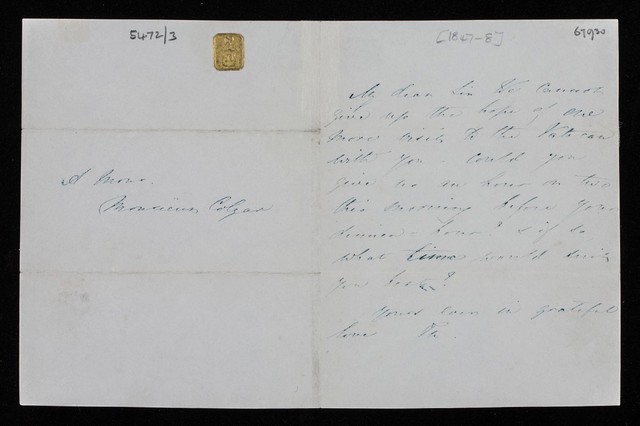 5472/3
[1867-8]
67920
A Mons.
Monsieur Colgar
My dear Sir We cannot
give up the hope of one
more visit to the Vatican
with you. Could you
give us an hour or two
this morning before your
dinner hour? & if so
what time would suit
you best?
Yours ever in grateful
love